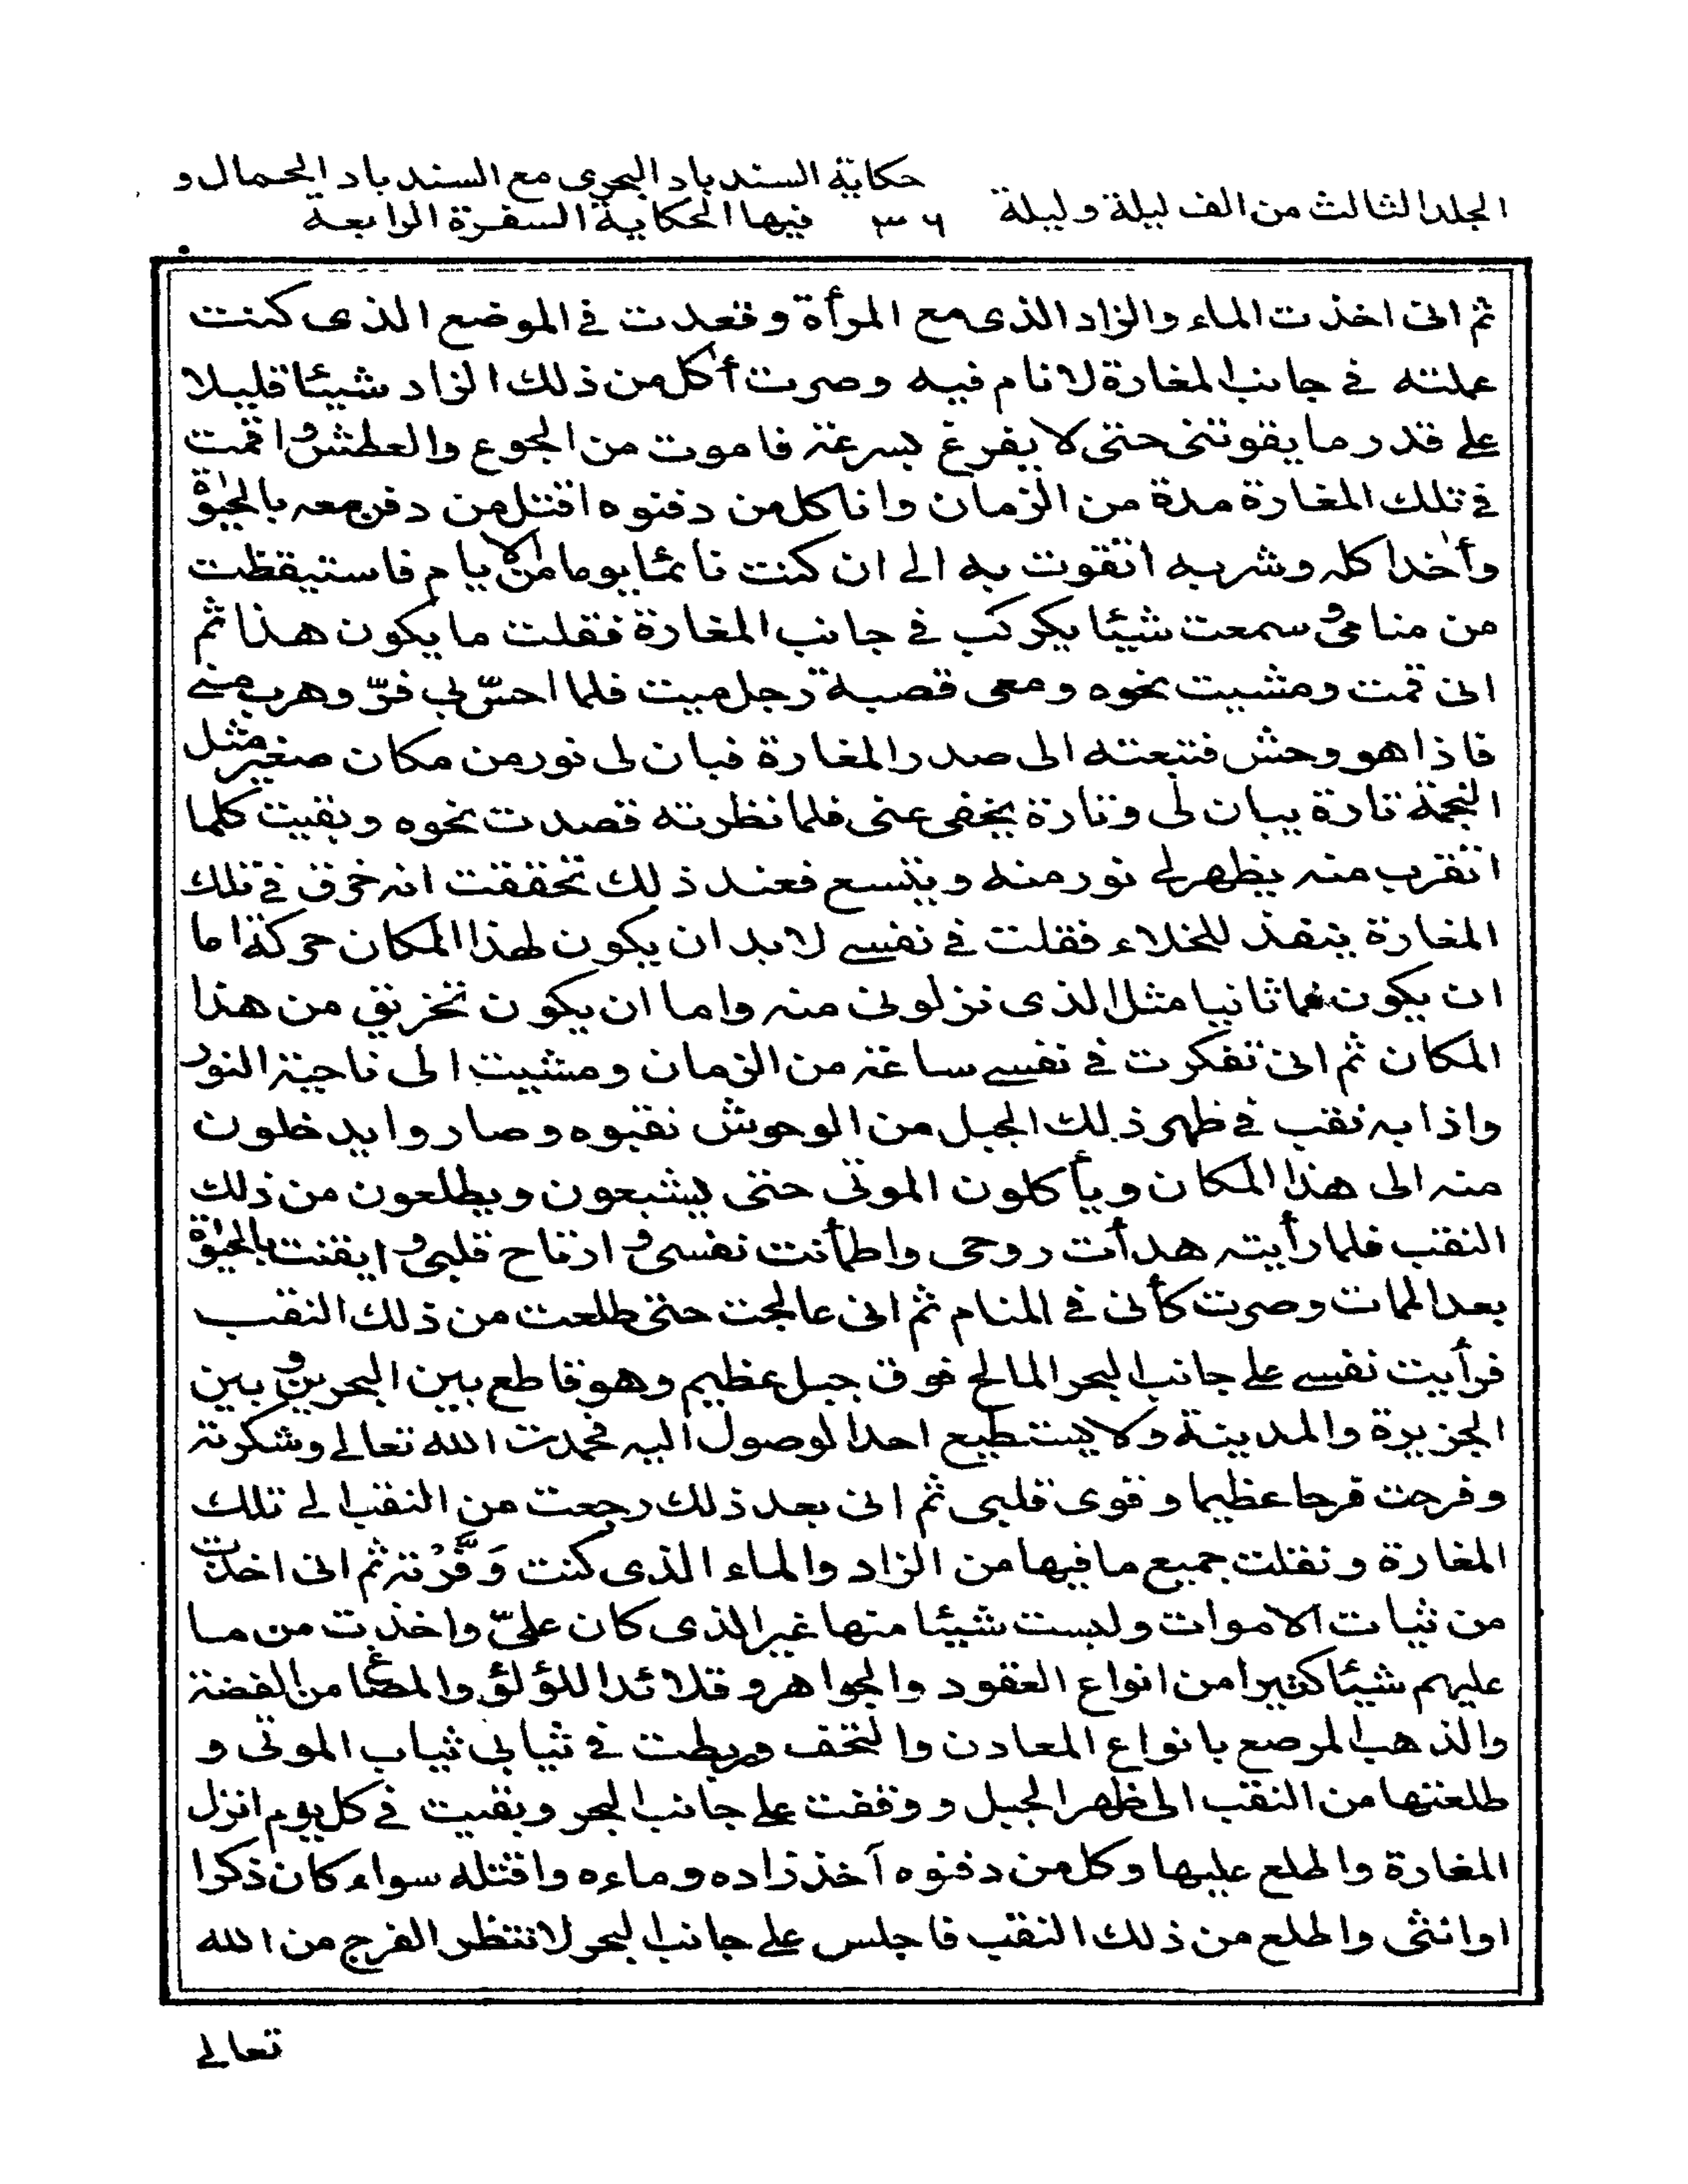 المجلد الثالث من الف ليلة وليلة
٣٦
حكاية السندباد البحرى مع السندباد الحمال و
فيها الحكاية السفرة الرابعة
ثم انى اخذت الماء والزاد الذى مع المرأة وقعدت فى الموضع الذى كنت
عملته فى جانب المغارة لانام فيه وصرت أكل من ذلك الزاد شيئا قليلا
على قدر ما يقوتنى حتى لا يفرغ بسرعة فاموت من الجوع والعطش واقمت
فى تلك المغارة مدة من الزمان وانا كل من دفنوه اقتل من دفن معه بالحيوة
وأخذ اكله وشربه اتقوت به الى ان كنت نائما يوما من الايام فاستيقظت
من منامى وسمعت شيئا يكركب فى جانب المغارة فقلت ما يكون هذا ثم
انى قمت ومشيت نحوه ومعى قصبة رجل ميت فلما احسّ بى فرّ وهرب منى
فاذا هو وحش فتبعته الى صدر المغارة فبان لى نور من مكان صغير مثل
النجمة تارة يبان لى وتارة يخفى عنى فلما نظرته قصدت نحوه وبقيت كلما
اتقرب منه يظهر لى نور منه ويتسع فعند ذلك تحققت انه خرق فى تلك
المغارة ينفذ للخلاء فقلت فى نفسى لابد ان يكون لهذا المكان حركة اما
ان يكون فما ثانيا مثل الذى نزلونى منه واما ان يكون تخريق من هذا
المكان ثم انى تفكرت فى نفسى ساعة من الزمان ومشيت الى ناحية النور
واذا به نقب فى ظهر ذلك الجبل من الوحوش نقبوه وصاروا يدخلون
منه الى هذا المكان ويأكلون الموتى حتى يشبعون ويطلعون من ذلك
النقب فلما رأيته هدأت روحى واطمأنت نفسى وارتاح قلبى وايقنت بالحيوة
بعد الممات وصرت كأنى فى المنام ثم انى عالجت حتى طلعت من ذلك النقب
فرأيت نفسى على جانب البحر المالح فوق جبل عظيم وهو قاطع بين البحرين وبين
الجزيرة والمدينة ولا يستطيع احد الوصول اليه فحمدت الله تعالى وشكرته
وفرحت فرحا عظيما وقوى قلبى ثم انى بعد ذلك رجعت من النقب الى تلك
المغارة ونقلت جميع ما فيها من الزاد والماء الذى كنت وَفَّرْته ثم انى اخذت
من ثياب الاموات ولبست شيئا منها غير الذى كان علىّ واخذت من ما
عليهم شيئا كثيرا من انواع العقود والجواهر وقلائد اللؤلؤ والمصاغ من الفضة
والذهب المرصع بانواع المعادن والتحف وربطت فى ثيابى ثياب الموتى و
طلعتها من النقب الى ظهر الجبل ووقفت على جانب البحر وبقيت فى كل يوم انزل
المغارة واطلع عليها وكل من دفنوه آخذ زاده وماءه واقتله سواء كان ذكرا
او انثى واطلع من ذلك النقب فاجلس على جانب البحر لانتظر الفرج من الله
تعالى